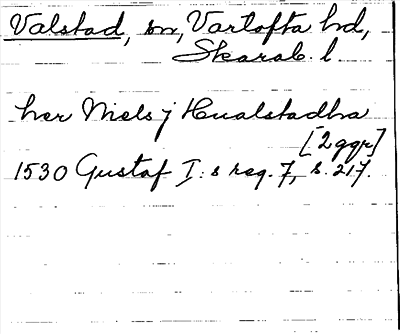 Valstad, sn, Vartofta hd,
Skarab. l.
her Niels j Hualstadha
[2 ggr]
1530 Gustaf I:s reg. 7, s. 217.